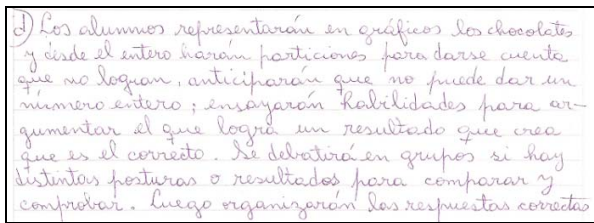 d) Los alumnos representarán en gráficos los chocolates
y desde el entero harán particiones para darse cuenta
que no logran, anticiparán que no puede dar un
número entero; ensayarán habilidades para ar-
gumentar el que logra un resultado que crea
que es el correcto. Se debatirá en grupos si hay
distintas posturas o resultados para comparar y
comprobar. Luego organizarán las respuestas correctas